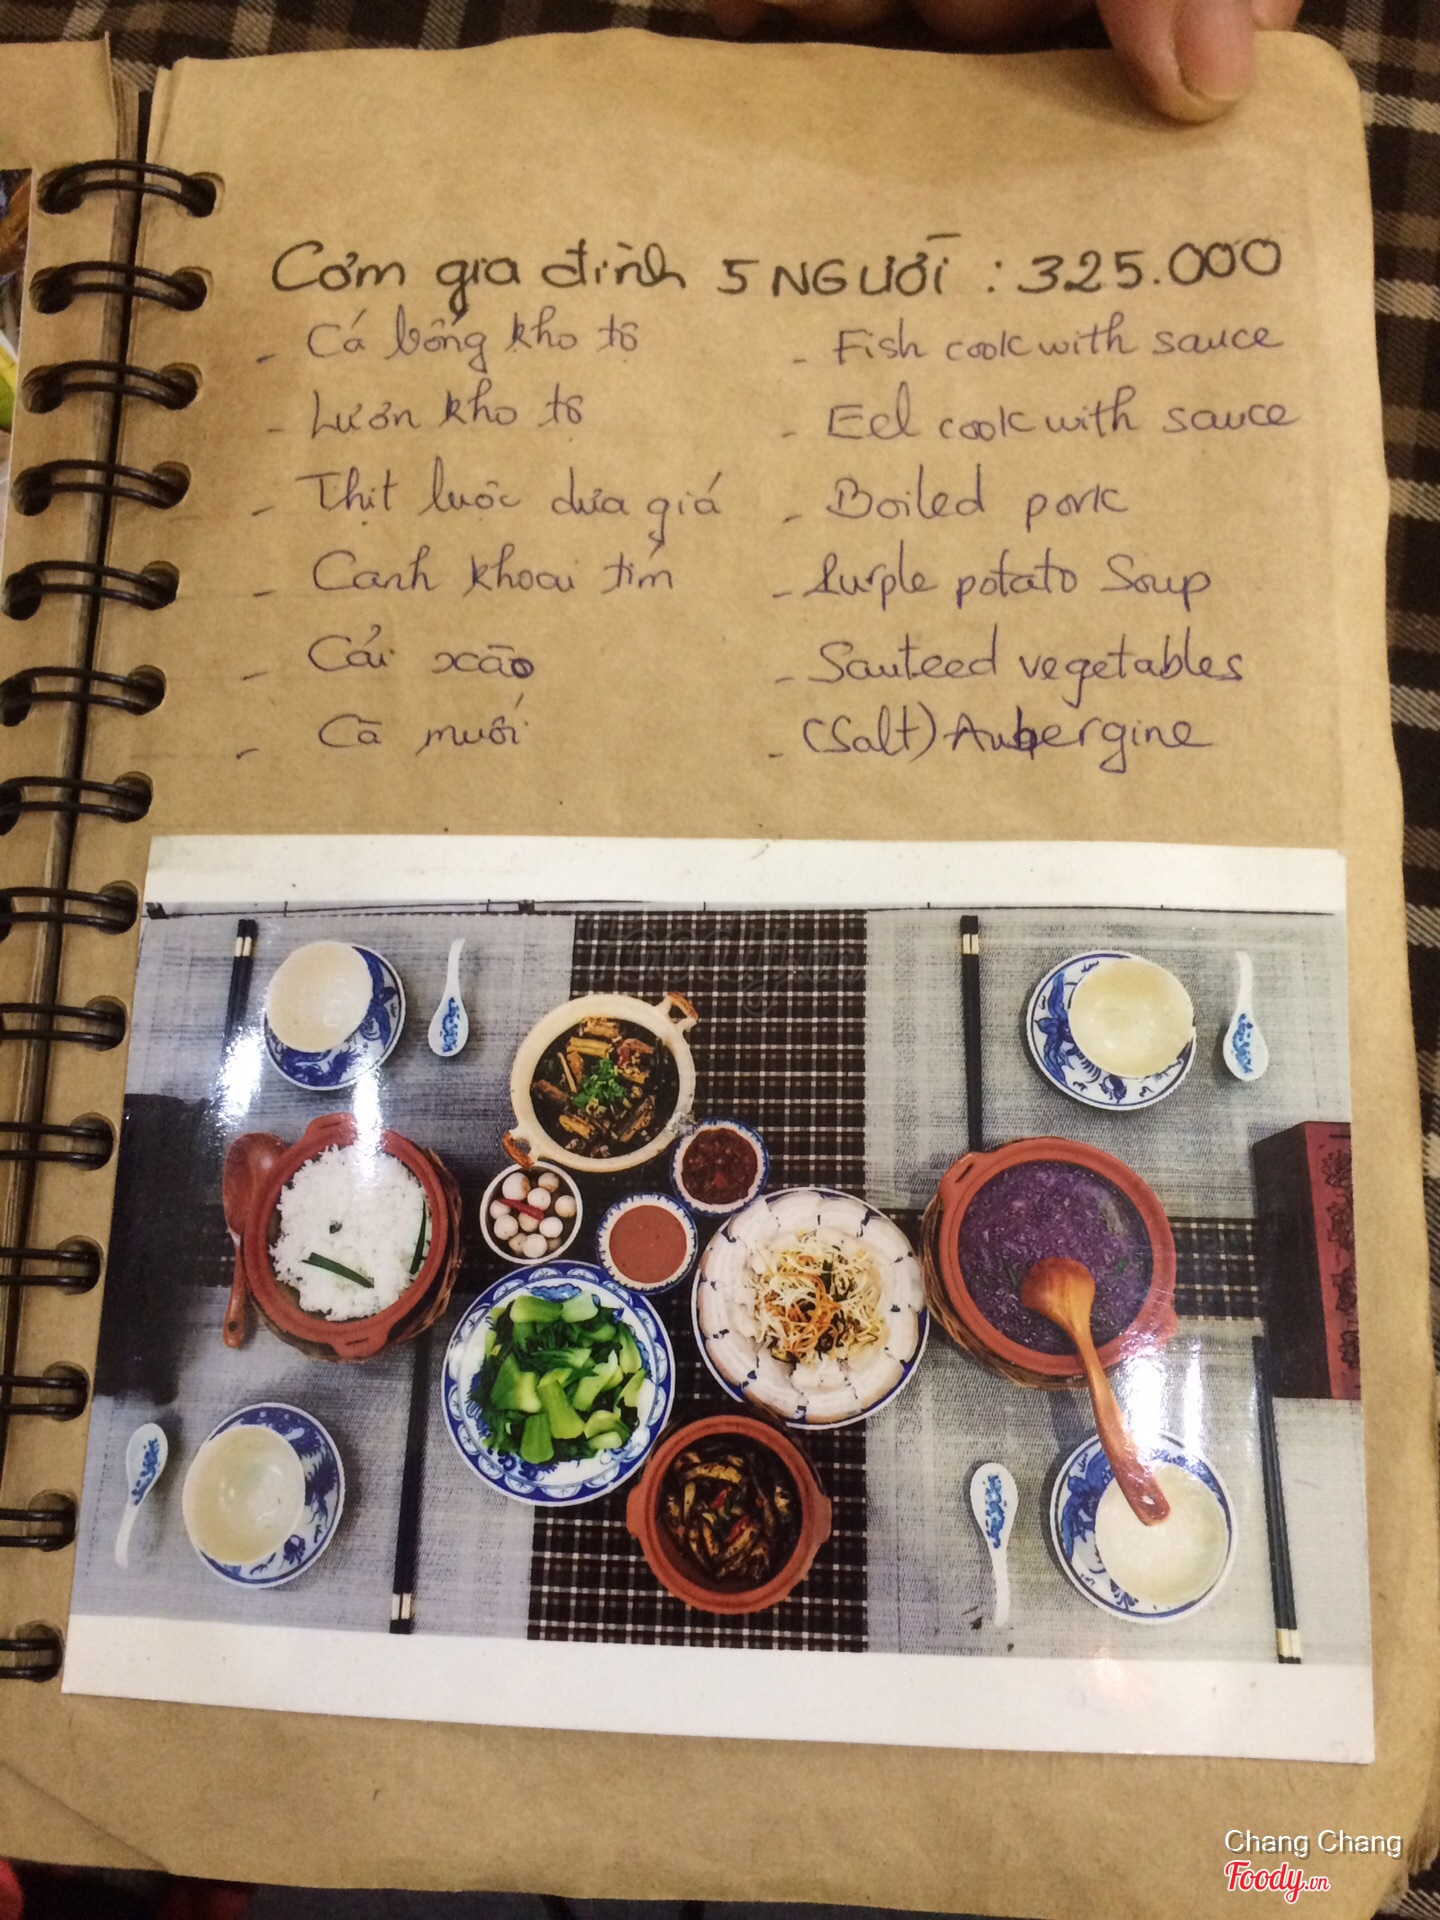 Cơm gia đình 5 NGƯỜI : 325.000
- Cá bống kho tộ - Fish cook with sauce
- Lươn kho tộ - Eel cook with sauce
- Thịt luộc dưa giá - Boiled pork
- Canh khoai tím - Purple potato Soup
- Cải xào - Sauteed vegetables
- Cà muối - (Salt) Aubergine
Foody.vn
Chang Chang
Foody.vn